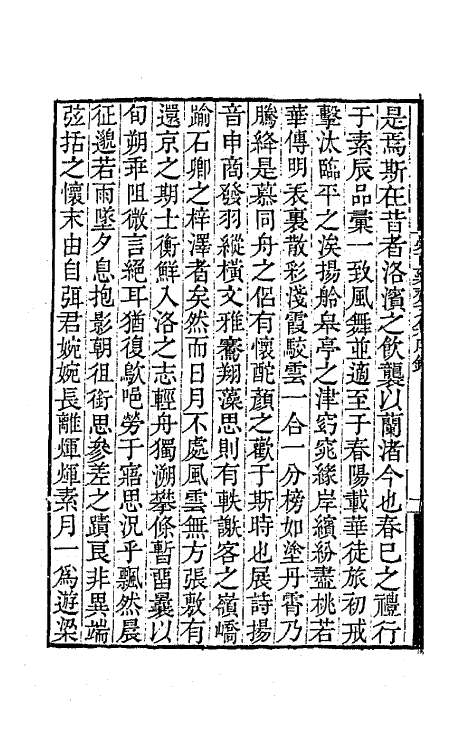 是焉斯在昔者洛濱之飲襲以蘭渚今也春巳之禮行
于素辰品彙一致風舞並適至于春陽載華徒旅初戒
擊汰臨平之涘揚舲皋亭之津窈窕緣岸繽紛盡桃若
華傳明表裏散彩淺霞駮雲一合一分榜如塗丹霄乃
騰絳是慕同舟之侶有懷酡顏之歡于斯時也展詩揚
音申商發羽縱橫文雅審翔藻思則有軼謝客之嶺嶠
踰石卿之梓澤者矣然而日月不處風雲無方張敷有
還京之期士衡鮮入洛之志輕舟獨溯攀條暫畱曩以
旬朔乖阻微言絕耳猶復歍唈勞于寤思況乎飄然晨
征邈若雨墜夕息抱影朝徂銜思參差之蹟良非異端
弦括之懷末由自弭君婉婉長離煇煇素月一爲遊梁